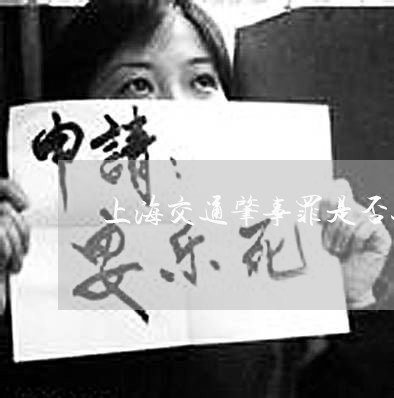 申請：
上海交通肇事罪是否
乐死